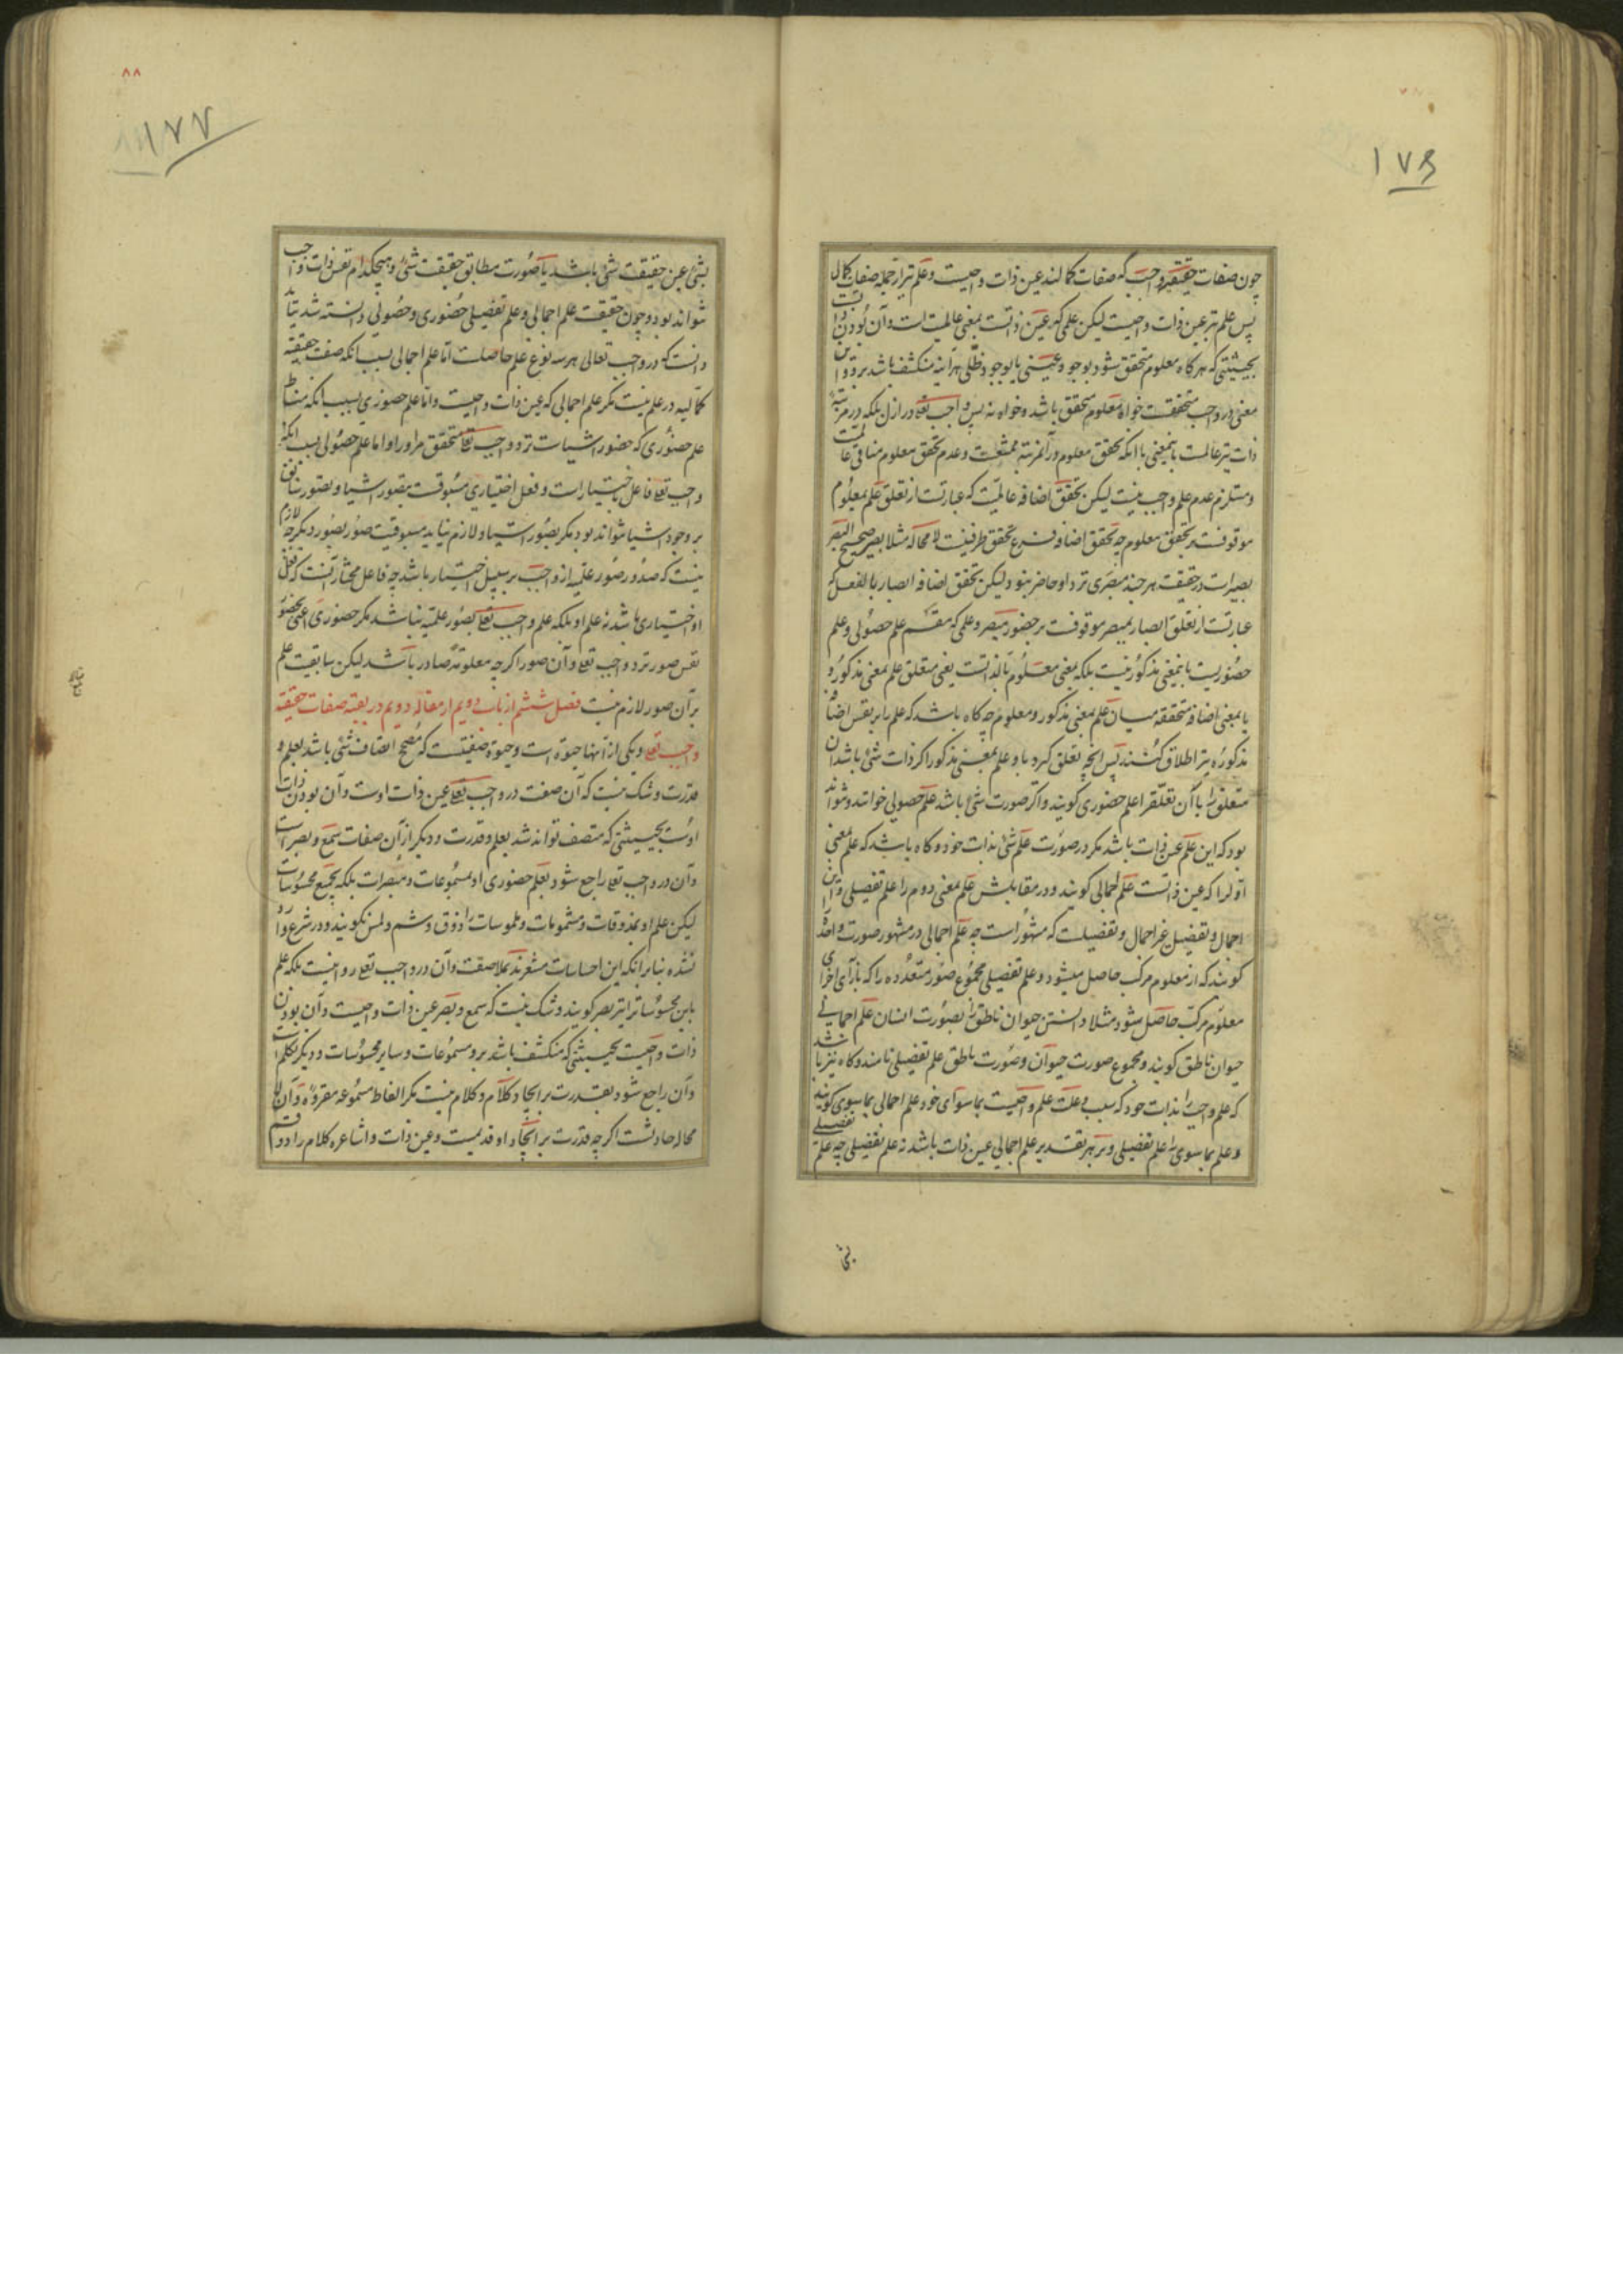 ١٧٦
چون صفات حقیقیه واجب که صفات کمالند عین ذات واجبست و علم نیز از جمله صفات کمال
پس علم نیز عین ذات واجبست لیکن علمی که عین ذاتست بمعنی عالمیت است و آن بودن ذات
بحیثیتی که هرگاه معلوم متحقق شود بوجود عینی یا بوجود ظلی هرآینه منکشف باشد برو و این
معنی در واجب متحققست خواه معلوم متحقق باشد و خواه نه پس واجب تعالی در ازل بلکه در مرتبهٔ
ذات نیز عالمست باینمعنی با آنکه تحقق معلوم در آنمرتبه ممتنعست و عدم تحقق معلوم منافی عالمیت
و مستلزم عدم علم واجب نیست لیکن تحقق اضافه عالمیت که عبارتست از تعلق علم بمعلوم
موقوفست بر تحقق معلوم چه تحقق اضافه فرع تحقق طرفینست لا محاله مثلا بصیر صحیح البصر
بصیر است در حقیقت هر چند مبصری نزد او حاضر نبود لیکن تحقق اضافه ابصار بالفعل که
عبارتست از تعلق ابصار بمبصر موقوفست بر حضور مبصر و علمی که مقسم علم حصولی و علم
حضوریست باینمعنی مذکور نیست بلکه بمعنی معلوم بالذاتست یعنی متعلق علم بمعنی مذکور و
یا بمعنی اضافه متحققه میان علم بمعنی مذکور و معلوم چه گاه باشد که علم را بر نفس اضافهٔ
مذکوره نیز اطلاق کنند پس آنچه تعلق گیرد باو علم بمعنی مذکور اگر ذات شئ باشد آن
متعلق را یا آن تعلق را علم حضوری گویند و اگر صورت شئ باشد علم حصولی خوانند و نتواند
بود که این علم عین ذات باشد مگر در صورت علم شئ بذات خود و گاه باشد که علم بمعنی
اول را که عین ذاتست علم اجمالی گویند و در مقابلش علم بمعنی دوم را علم تفصیلی و این
اجمال و تفصیل غیر اجمال و تفصیلست که مشهور است چه علم اجمالی در مشهور صورت واحده را
گویند که از معلوم مرکب حاصل میشود و علم تفصیلی مجموع صور متعدده را که بازای اجزای
معلوم مرکب حاصل شود مثلا دانستن حیوان ناطق را بصورت انسان علم اجمالی
حیوان ناطق گویند و مجموع صورت حیوان و صورت ناطق علم تفصیلی نامند و گاه نیز باشد
که علم واجب را بذات خود که سبب و علت علم واجبست بما سوای خود علم اجمالی بما سوی گویند
و علم بما سوی را علم تفصیلی و بر هر تقدیر علم اجمالی عین ذات باشد نه علم تفصیلی چه علم تفصیلی
بشئ
٨٨
١٧٧
بشئ عین حقیقت شئ باشد یا صورت مطابق حقیقت شئ و هیچکدام نفس ذات واجب
نتواند بود و چون حقیقت علم اجمالی و علم تفصیلی حضوری و حصولی دانسته شد بباید
دانست که در واجب تعالی هر سه نوع علم حاصلست اما علم اجمالی بسبب آنکه صفت حقیقیه
کمالیه در علم نیست مگر علم اجمالی که عین ذات واجبست و اما علم حضوری بسبب آنکه مناط
علم حضوری که حضور اشیاست نزد واجب تعالی متحقق مر او را و اما علم حصولی بسبب آنکه
واجب تعالی فاعل باختیار است و فعل اختیاری مسبوقست بتصور اشیا و تصور سابق
بر وجود اشیا نتواند بود مگر بصور اشیا و لازم نیاید مسبوقیت صور بصور دیگر چه لازم
نیست که صدور صور علمیه از واجب بر سبیل اختیار باشد چه فاعل مختار آنست که فعل
او اختیاری باشد نه علم او بلکه علم واجب تعالی بصور علمیه نباشد مگر حضوری اعنی بحضور
نفس صور نزد واجب تعالی و آن صور اگرچه معلومة صادر باشد لیکن سابقیت علم
بر آن صور لازم نیست فصل ششم از باب دویم از مقاله دویم در بقیه صفات حقیقیه
واجب تعالی و یکی از آنها حیوة است و حیوة صفتیست که مصحح اتصاف شئ باشد بعلم و
قدرت و شک نیست که آن صفت در واجب تعالی عین ذات اوست و آن بودن ذات
اوست بحیثیتی که متصف تواند شد بعلم و قدرت و دیگر از آن صفات سمع و بصر است
و آن در واجب تعالی راجع شود بعلم حضوری او بمسموعات و مبصرات بلکه بجمیع محسوسات
لیکن علم او بمذوقات و مشمومات و ملموسات را ذوق و شم و لمس نگویند و در شرع وارد
نشده بنابر آنکه این احساسات مشعرند بملاصقت و آن در واجب تعالی روا نیست بلکه علم
باین محسوسات را نیز بصر گویند و شک نیست که سمع و بصر عین ذات واجبست و آن بودن
ذات واجبست بحیثیتی که منکشف باشد برو مسموعات و سایر محسوسات و دیگر تکلم است
و آن راجع شود بقدرت بر ایجاد کلام و کلام نیست مگر الفاظ مسموعه مقروه و آن لا
محاله حادثست اگرچه قدرت بر ایجاد او قدیمست و عین ذات و اشاعره کلام را دو قسم